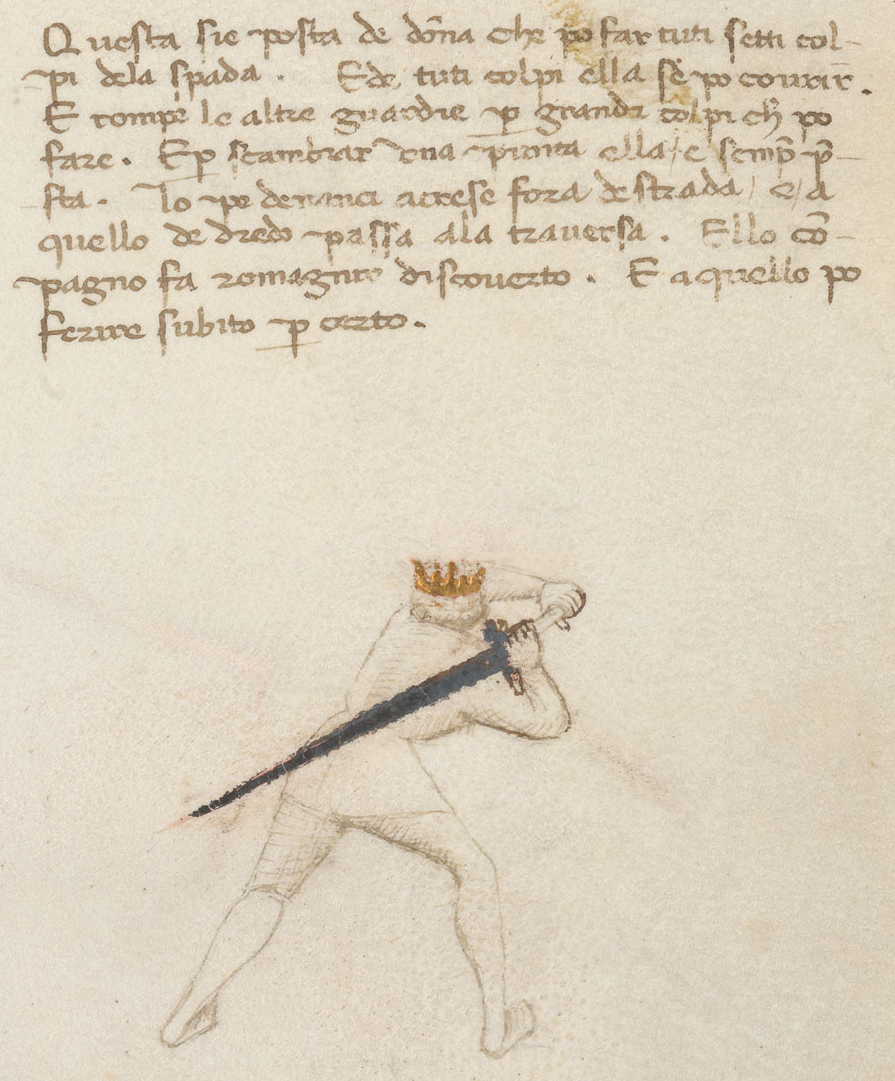 Questa sie posta de dōna che po far tuti setti col-
pi dela spada. E de tuti colpi ella se po courir.
E rompe le altre guardie p̱ grandi colpi ch̄ po
fare. E p̱ scambiar una punta ella e semp̄ p̄-
sta. Lo pe denanci acrese fora de strada, e a
quello de dredo passa ala traversa. E llo cō-
pagno fa romagnir discoverto. E a quello po
ferire subito p̱ certo.